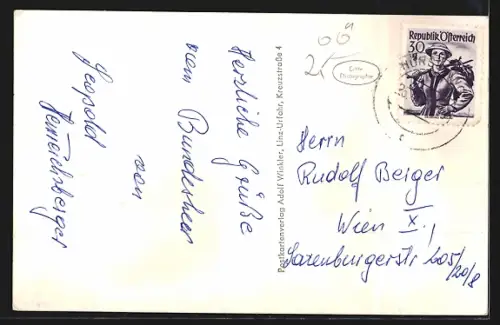 Herzliche Grüße
vom Bundesheer
von
Leopold
Heinrichsberger
Postkartenverlag Adolf Winkler, Linz-Urfahr, Kreuzstraße 4
OÖ
Echte
Photographie
Republik Österreich
30
Herrn
Rudolf Berger
Wien X.,
Laxenburgerstr 205/
20/8